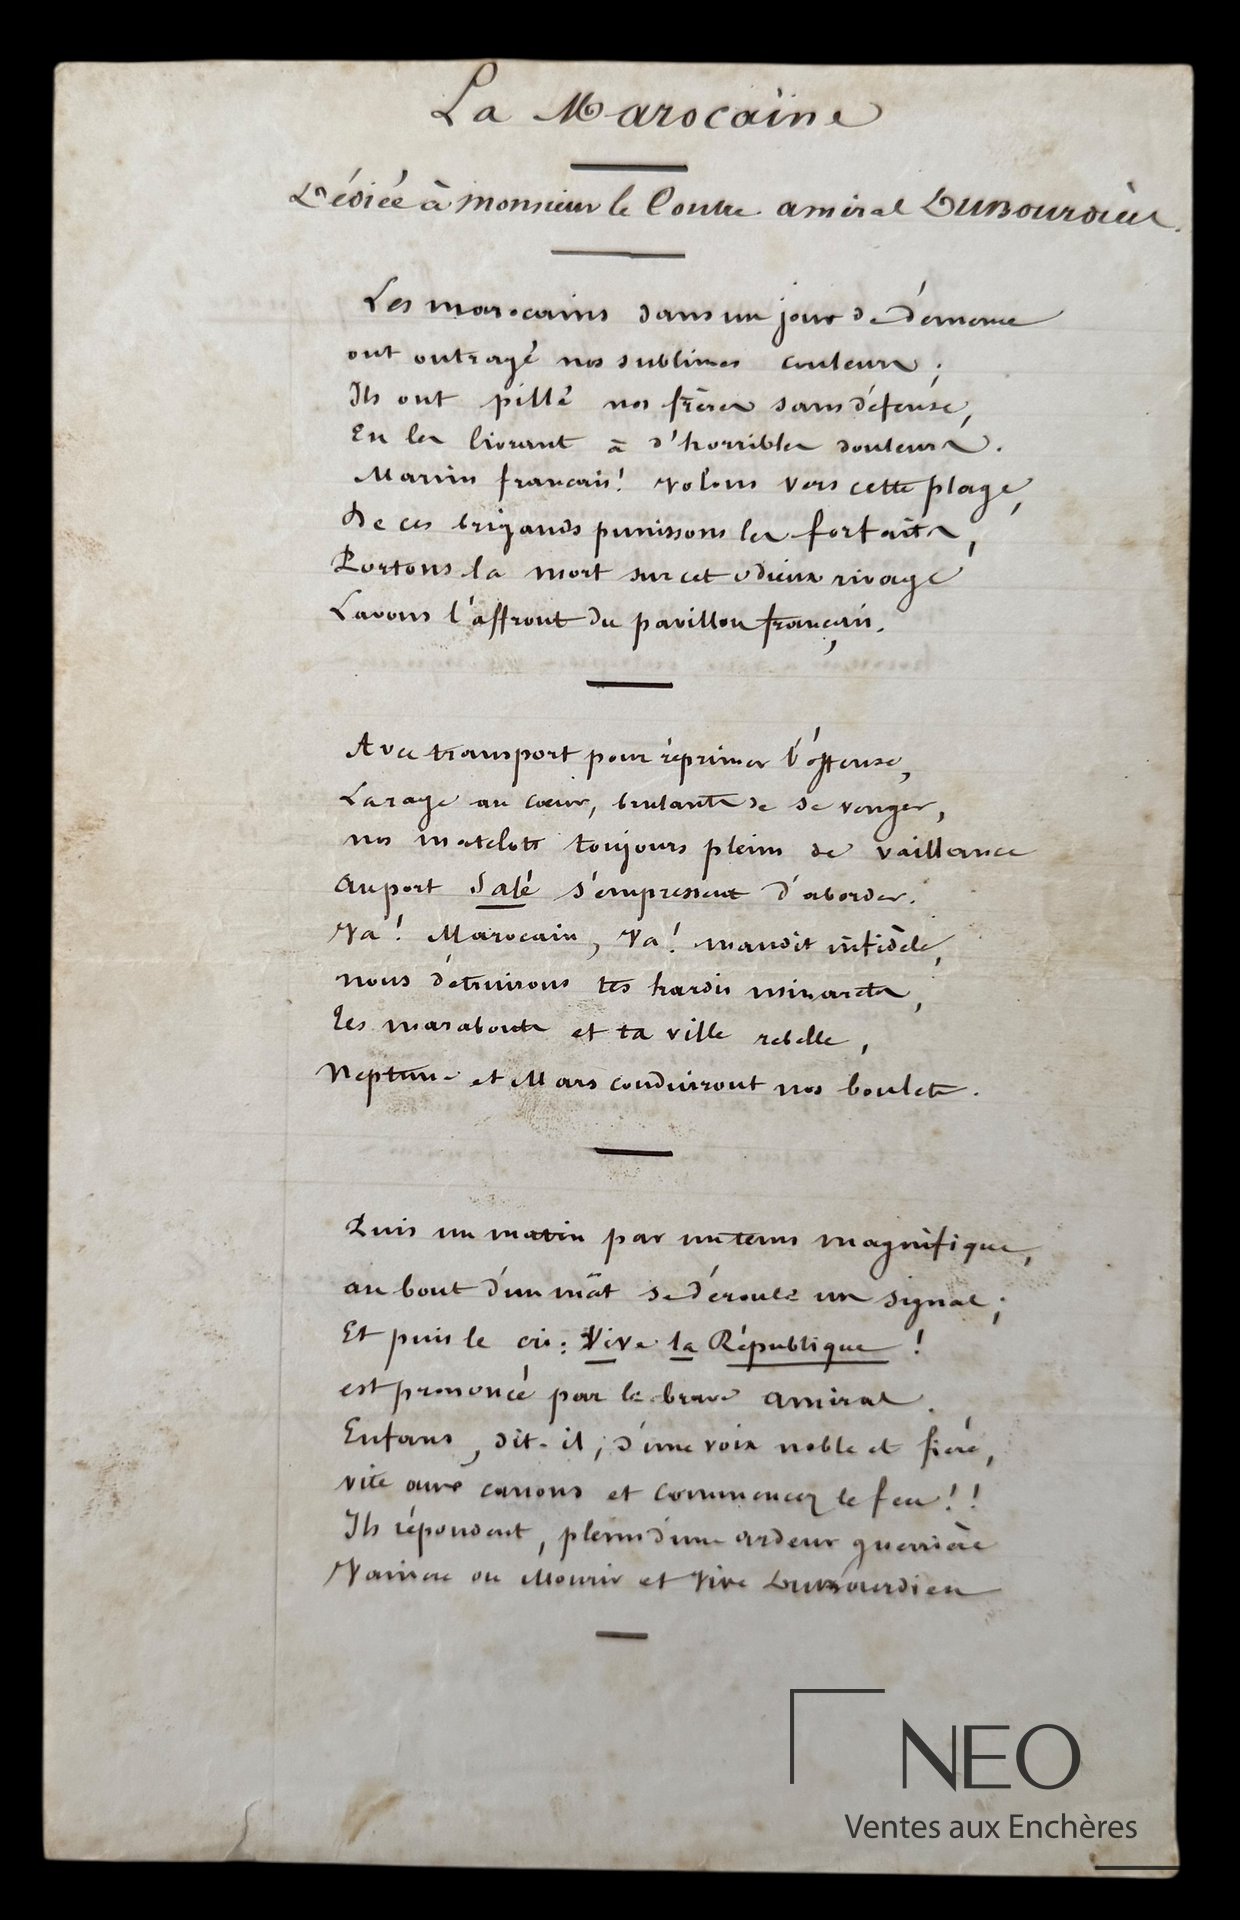 La Marocaine
Dédiée à monsieur le Contre amiral Dubourdieu.
Les marocains dans un jour de démence
ont outragé nos sublimes couleurs ;
Ils ont pillé nos frères sans défense,
En les livrant à d'horribles douleurs.
Marins français! volons vers cette plage,
De ces brigands punissons les forfaits,
Portons la mort sur cet odieux rivage
Lavons l'affront du pavillon français.
Avec transport pour réprimer l'offense,
La rage au cœur, brulants de se venger,
nos matelots toujours pleins de vaillance
au port Salé s'empressent d'aborder.
Va! Marocain, Va! maudit infidèle,
nous détruirons tes hardis minarets,
Tes marabouts et ta ville rebelle,
Neptune et Mars conduiront nos boulets.
Puis un matin par un tems magnifique,
au bout d'un mât se déroule un signal ;
Et puis le cri : Vive la République !
est prononcé par le brave amiral.
Enfans, dit-il, d'une voix noble et fière,
vite aux canons et commencez le feu!!
Ils répondent, pleins d'une ardeur guerrière
Vaincre ou Mourir et Vive Dubourdieu
NEO
Ventes aux Enchères